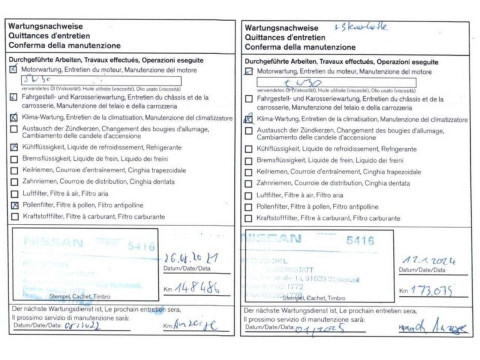 Wartungsnachweise
Quittances d'entretien
Conferma della manutenzione
Durchgeführte Arbeiten, Travaux effectués, Operazioni eseguite
Motorwartung, Entretien du moteur, Manutenzione del motore
5W30
verwendetes Öl (Viskosität), Huile utilisée (viscosité), Olio usato (viscosità)
Fahrgestell- und Karosseriewartung, Entretien du châssis et de la
carrosserie, Manutenzione del telaio e della carrozzeria
Klima-Wartung, Entretien de la climatisation, Manutenzione del climatizzatore
Austausch der Zündkerzen, Changement des bougies d'allumage,
Cambiamento delle candele d'accensione
Kühlflüssigkeit, Liquide de refroidissement, Refrigerante
Bremsflüssigkeit, Liquide de frein, Liquido dei freni
Keilriemen, Courroie d'entraînement, Cinghia trapezoidale
Zahnriemen, Courroie de distribution, Cinghia dentata
Luftfilter, Filtre à air, Filtro aria
Pollenfilter, Filtre à pollen, Filtro antipolline
Kraftstofffilter, Filtre à carburant, Filtro carburante
NISSAN 5416
26.4.2021
Datum/Date/Data
Km 148484
Stempel, Cachet, Timbro
Der nächste Wartungsdienst ist, Le prochain entretien sera,
Il prossimo servizio di manutenzione sarà:
Datum/Date/Data Km Anzeige
Wartungsnachweise
Quittances d'entretien
Conferma della manutenzione
Durchgeführte Arbeiten, Travaux effectués, Operazioni eseguite
Motorwartung, Entretien du moteur, Manutenzione del motore
W30
verwendetes Öl (Viskosität), Huile utilisée (viscosité), Olio usato (viscosità)
Fahrgestell- und Karosseriewartung, Entretien du châssis et de la
carrosserie, Manutenzione del telaio e della carrozzeria
Klima-Wartung, Entretien de la climatisation, Manutenzione del climatizzatore
Austausch der Zündkerzen, Changement des bougies d'allumage,
Cambiamento delle candele d'accensione
Kühlflüssigkeit, Liquide de refroidissement, Refrigerante
Bremsflüssigkeit, Liquide de frein, Liquido dei freni
Keilriemen, Courroie d'entraînement, Cinghia trapezoidale
Zahnriemen, Courroie de distribution, Cinghia dentata
Luftfilter, Filtre à air, Filtro aria
Pollenfilter, Filtre à pollen, Filtro antipolline
Kraftstofffilter, Filtre à carburant, Filtro carburante
NISSAN 5416
12.1.2024
Datum/Date/Data
Km 173.075
Stempel, Cachet, Timbro
Der nächste Wartungsdienst ist, Le prochain entretien sera,
Il prossimo servizio di manutenzione sarà:
Datum/Date/Data 01/2025 nach Anzeige